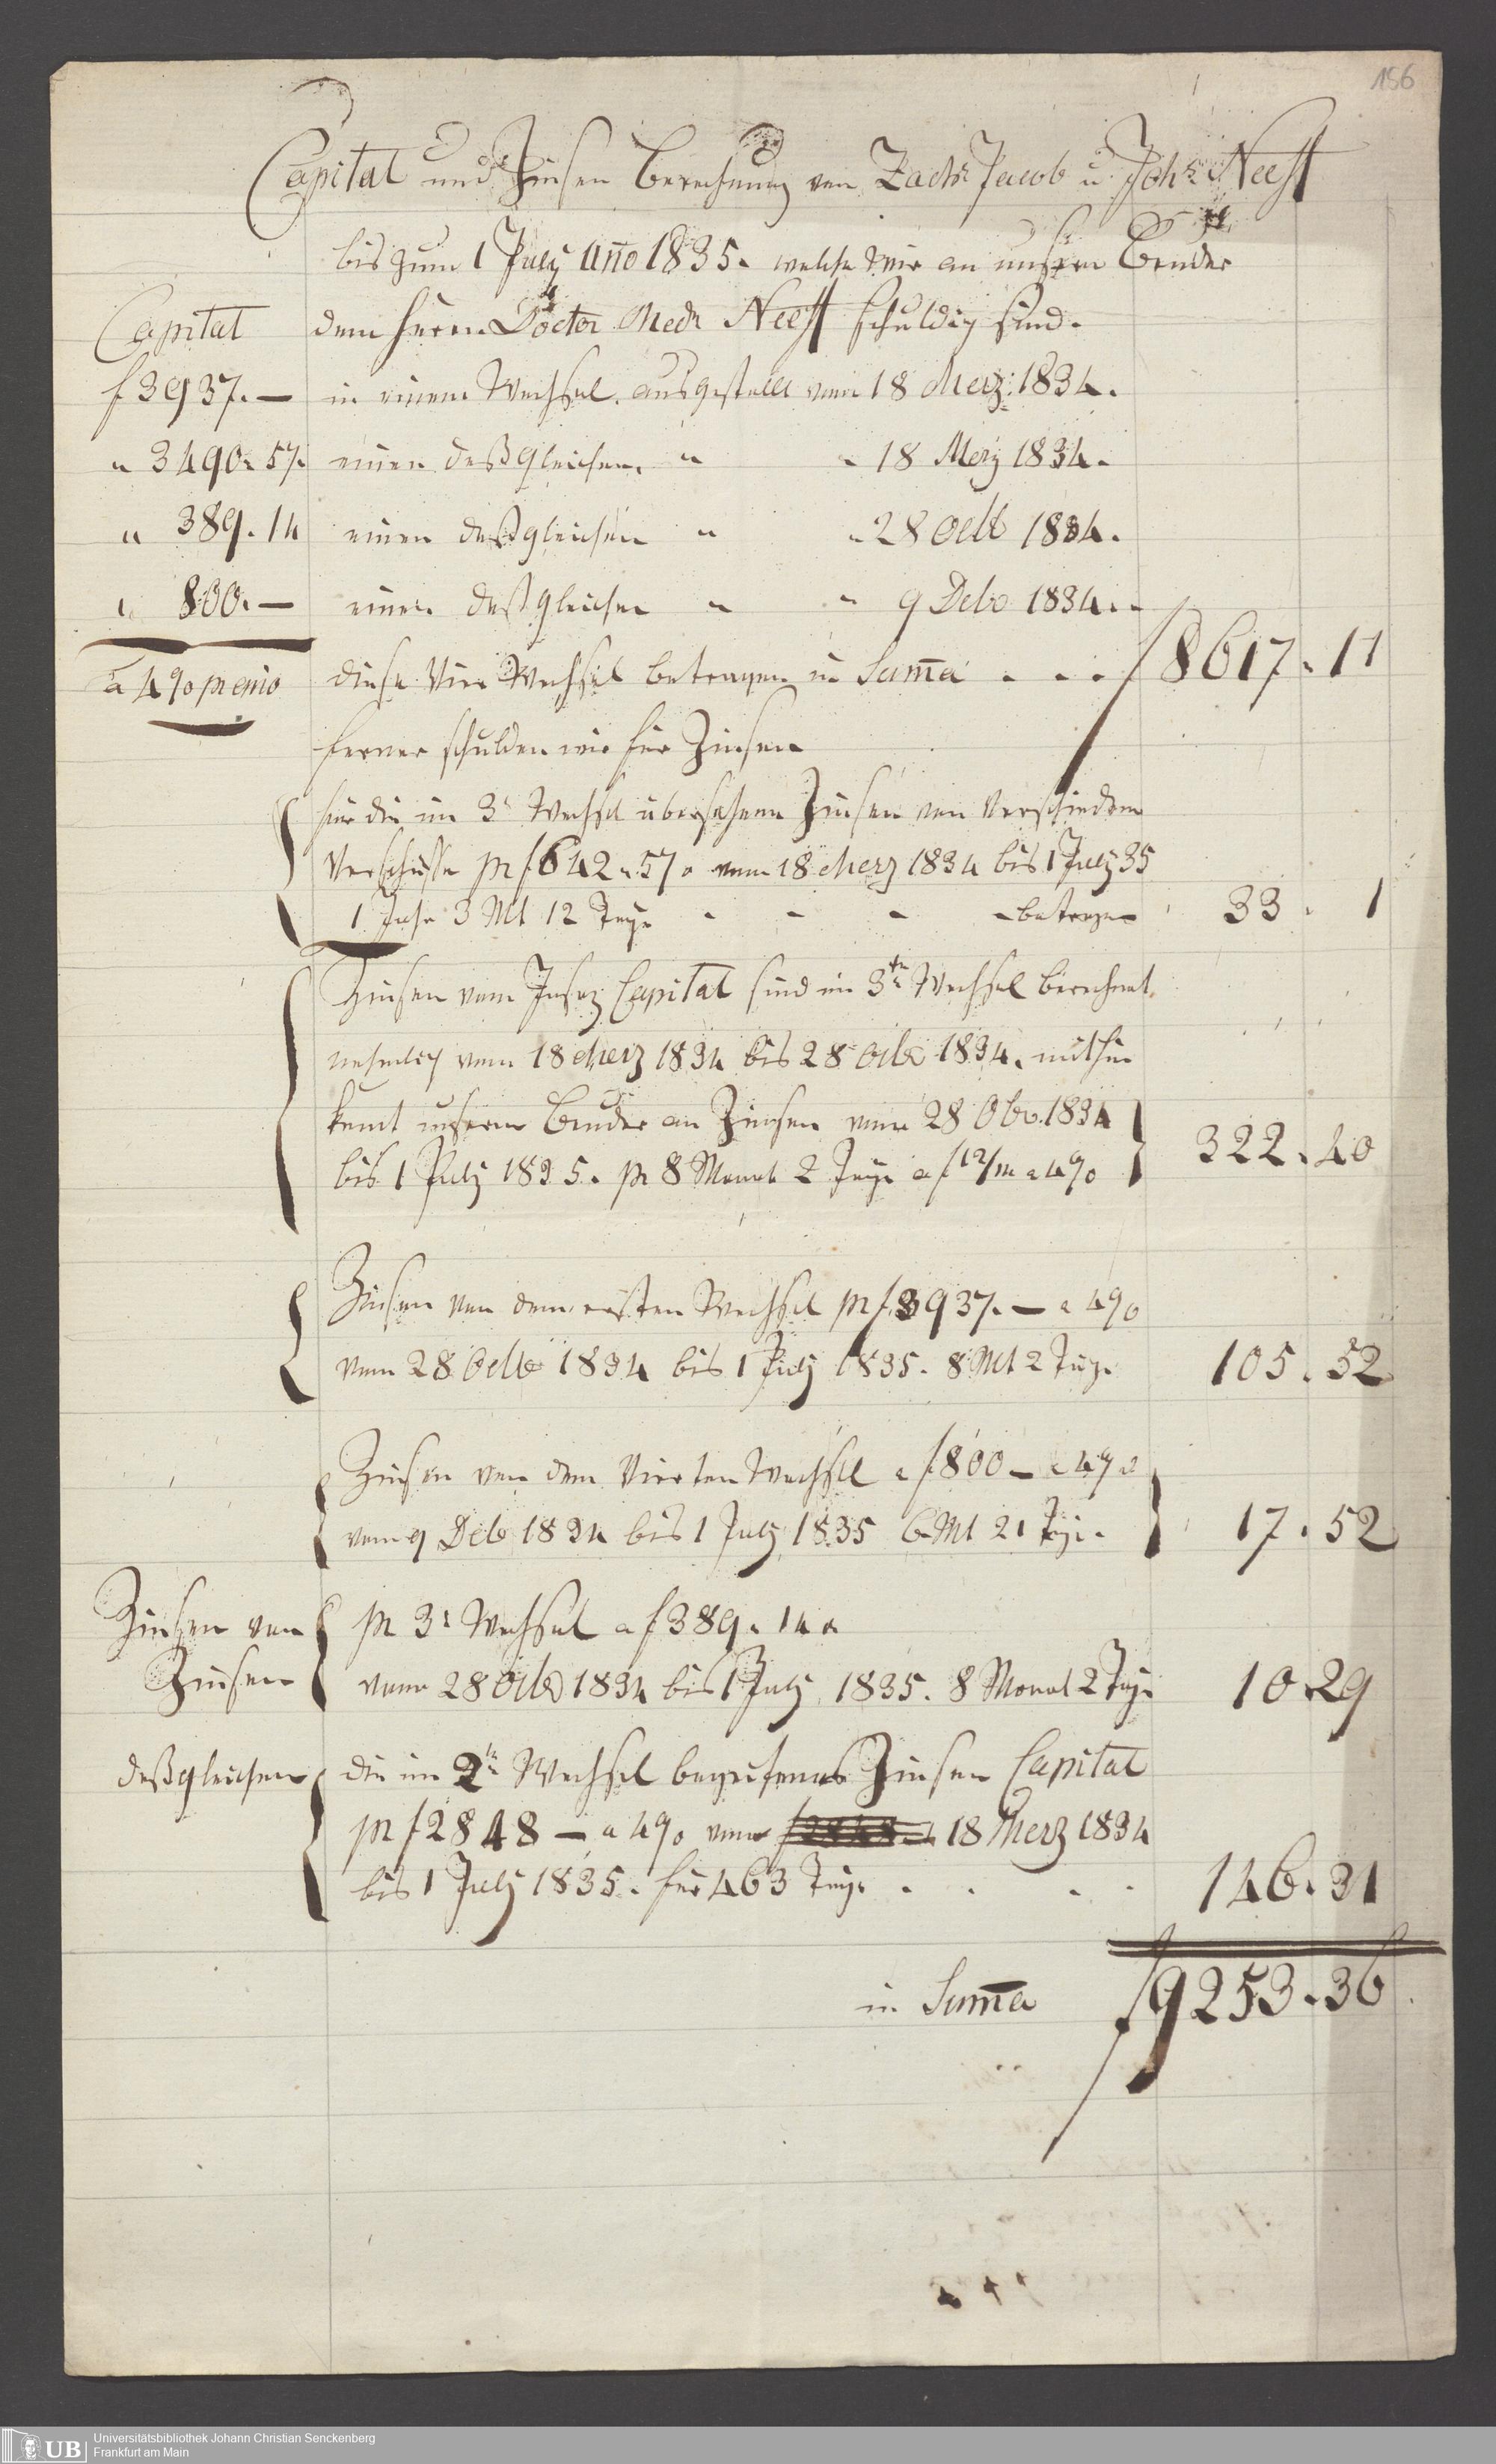 156
Capital und Zinsen Berechnung von Zachr Jacob u Johr Neeff
bis zum 1 July ano 1835. welche wir an unsern Bruder
Capital dem Herrn Doctor Medr Neeff schuldig sind.
f 3937. — in einem Wechsel. ausgestellt vom 18 Merz: 1834.
" 3490. 57. einen deßgleichen. " " 18 Merz 1834.
" 389. 14 einen deßgleichen " " 28 Octb 1834.
" 800. — einen deßgleichen " " 9 Debr 1834.
a 4 % p enio diese Vier Wechsel betragen in Suma . . . f 8617. 11
ferner schulden wir für Zinsen
für die im 3r Wechsel übersehene Zinsen von verschiedem
Verschusse pr f 642. 57. vom 18 Merz 1834 bis 1 July 35
1 Jahr 3 Mt 12 Tage - - - - betragen 33. 1
Zinsen vom Capital sind im 3tn Wechsel berechnet
nehmlich vom 18 Merz 1834 bis 28 Octbr 1834. mithin
komt unserm Bruder an Zinsen vom 28 Obr. 1834
bis 1 July 1835. pr 8 Monat 2 Tage a f 12/m a 4 % 322. 40
Zinsen von dem ersten Wechsel pr f 3937. — a 4 %
vom 28 Octbr 1834 bis 1 July 1835. 8 Mt 2 Tage. 105. 52
Zinsen von dem Vierten Wechsel a f 800 — a 4 %
vom 9 Debr 1834 bis 1 July 1835 6 Mt 21 Tage. 17. 52
Zinsen von pr 3r Wechsel a f 389. 14.
Zinsen vom 28 Octbr 1834 bis 1 July 1835. 8 Monat 2 Tage 10. 29
deßgleichen die im 2tn Wechsel begrifenes Zinsen Capital
pr f 2848 — a 4 % vom 18 Merz 1834
bis 1 July 1835. für 463 Tage . . . . 146. 31
in Suma f 9253. 36
UB Universitätsbibliothek Johann Christian Senckenberg
Frankfurt am Main